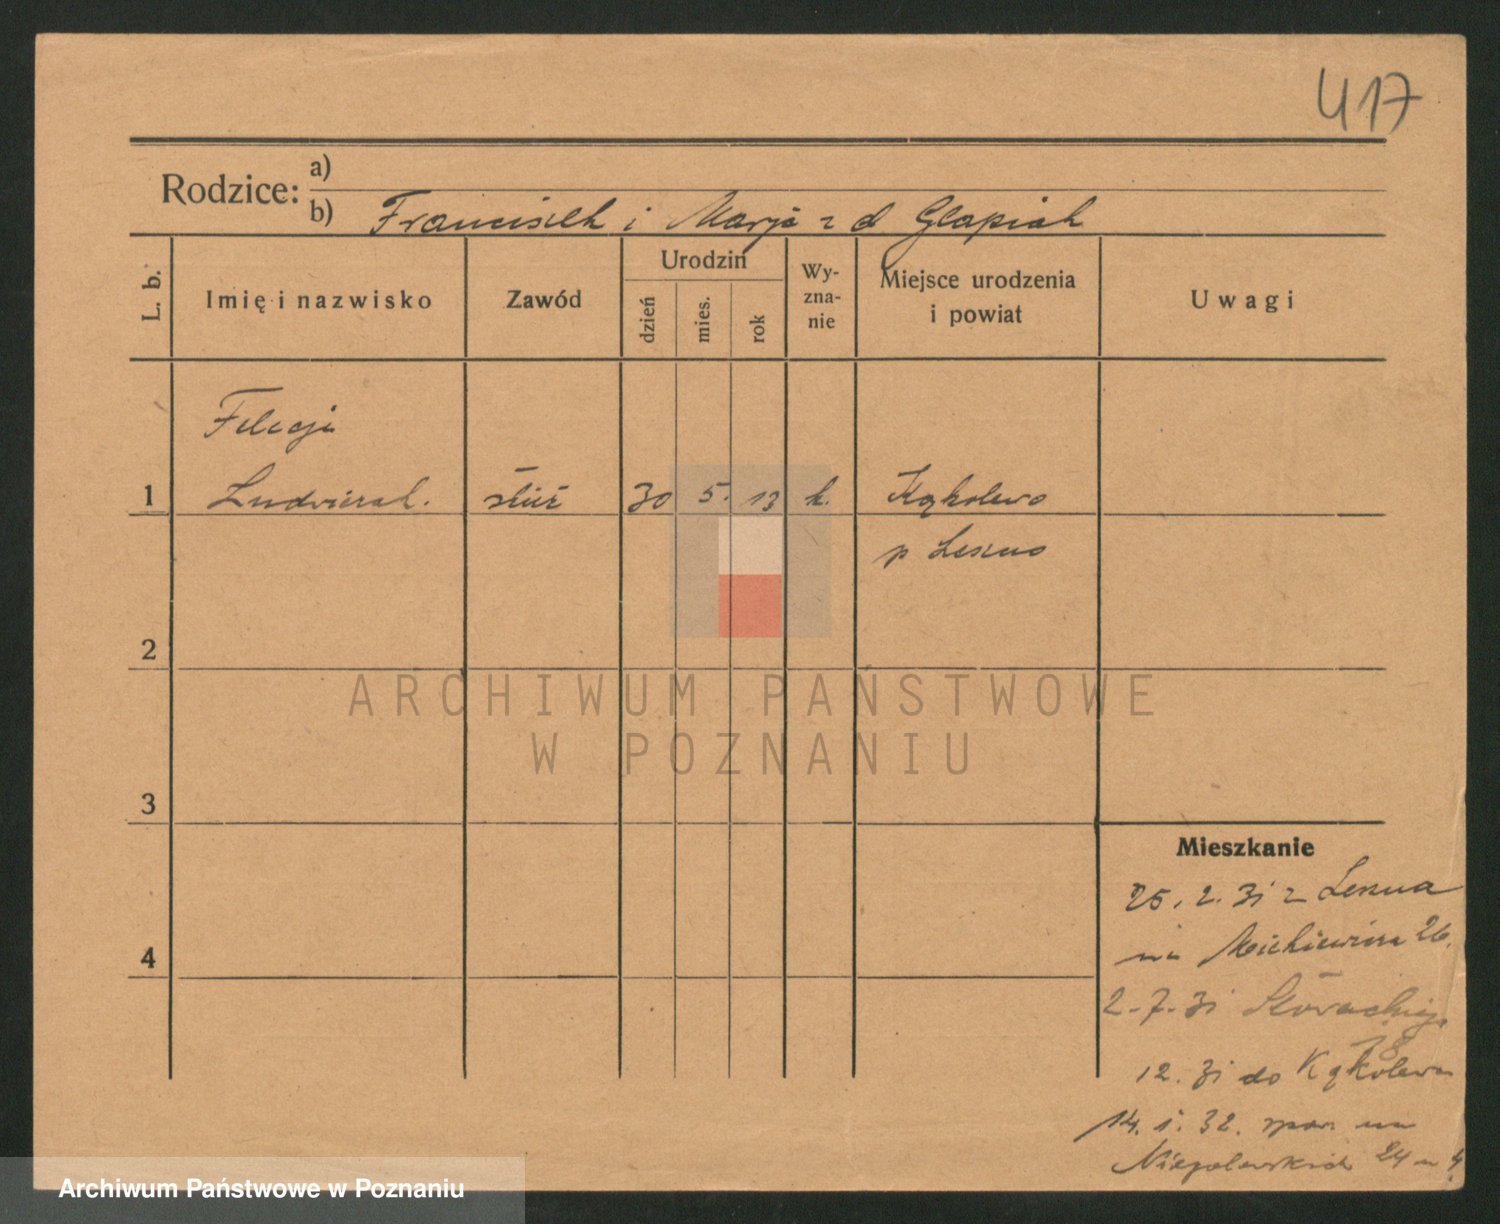 417
Rodzice: a)
b) Franciszek i Marja z d Glapiak
L. b.
Imię i nazwisko
Zawód
Urodzin
dzień
mies.
rok
Wy-
zna-
nie
Miejsce urodzenia
i powiat
Uwagi
Felicja
1 Ludwiczak. służ 30 5. 13 k. Kąkolewo
p Leszno
2
3
4
Mieszkanie
25. 2. 31 z Leszna
na Mickiewicza 26.
2-7-31 Słowackiego
18
12. 31 do Kąkolewa
14. 1. 32. na
Niegolewskich 24
ARCHIWUM PAŃSTWOWE
W POZNANIU
Archiwum Państwowe w Poznaniu